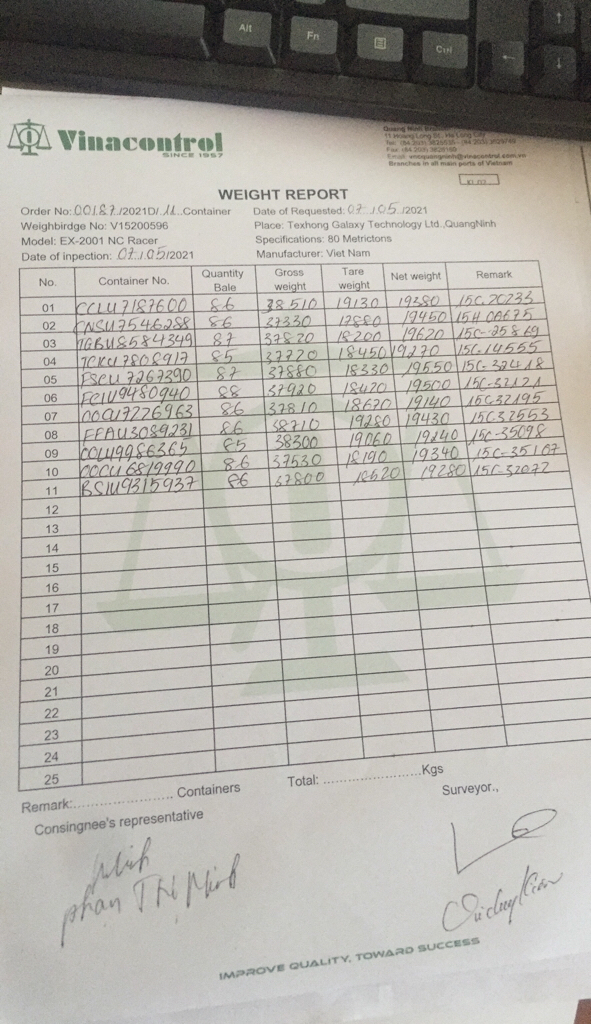 Alt
Fn
Ctrl
Vinacontrol
SINCE 1957
Quang Ninh
11 Hoang Long St., Ha Long City
Branches in all main ports of Vietnam
WEIGHT REPORT
Order No: 00187/2021D/.11..Container Date of Requested: 07./05./2021
Weighbirdge No: V15200596 Place: Texhong Galaxy Technology Ltd.,QuangNinh
Model: EX-2001 NC Racer Specifications: 80 Metrictons
Date of inpection: 07./05/2021 Manufacturer: Viet Nam
No. Container No. Quantity Bale Gross weight Tare weight Net weight Remark
01 CCLU7187600 86 38510 19130 19380 15C.20233
02 CNSU7546288 86 37330 17880 19450 15H.00675
03 TGBU8584349 87 37820 18200 19620 15C-25869
04 TCKU7808917 85 37720 18450 19270 15C-14555
05 FSCU7267390 87 37880 18330 19550 15C-32418
06 FCIU9480940 88 37920 18420 19500 15C-32121
07 OOCU7226963 86 37810 18670 19140 15C32195
08 FFAU3089231 86 38710 19280 19430 15C32553
09 COLU9986365 85 38300 19060 19240 15C-35098
10 CCCU6819990 86 37530 18190 19340 15C-35107
11 BSIU9315937 86 37800 18520 19280 15C-32072
12
13
14
15
16
17
18
19
20
21
22
23
24
25
Remark:........................ Containers Total: ........................Kgs
Consingnee's representative Surveyor.,
phan Thị Minh
IMPROVE QUALITY, TOWARD SUCCESS